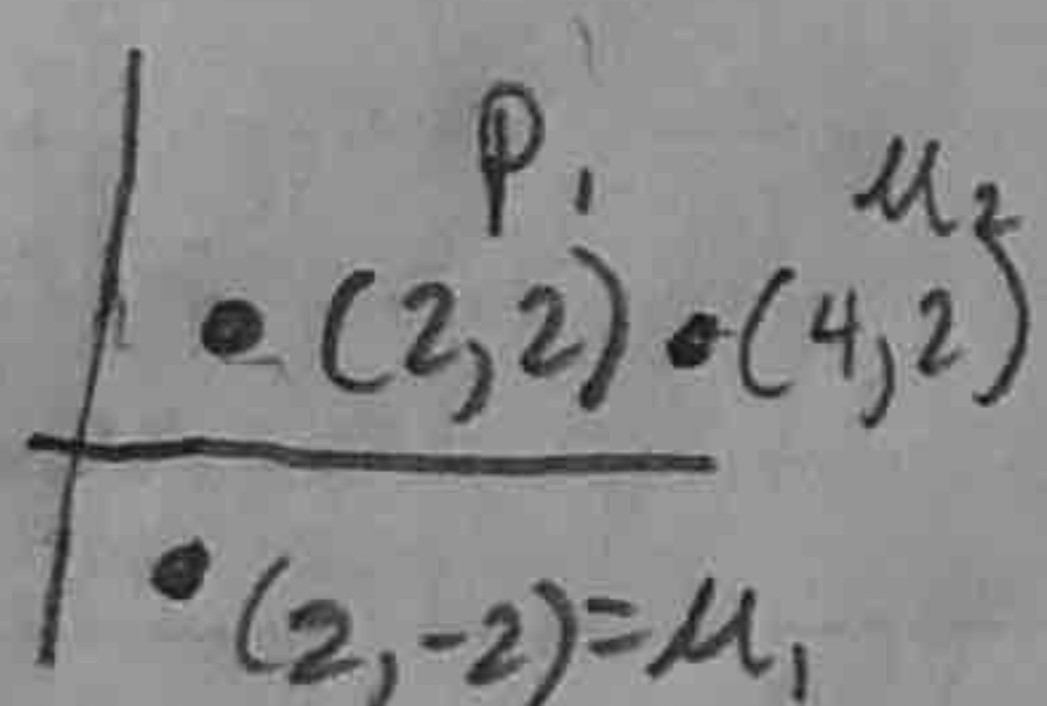 P₁ μ₂
(2,2) (4,2)
(2,-2)=μ₁